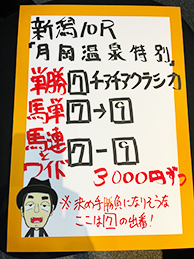 新潟10R
『月岡温泉特別』
単勝 7 チアチアクラシカ
馬単 7→9
馬連と
ワイド 7-9
3000円ずつ
※求め手勝負になりそうな
ここは7の出番!